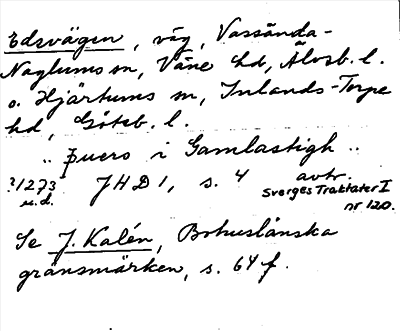 Edsvägen, väg, Vassända-
Naglums sn, Väne hd, Älvsb. l.
o. Hjärtums sn, Inlands-Torpe
hd, Göteb. l.
„ þuers i Gamlastigh „
?1273 JHD 1, s. 4 avtr.
u.d. Sverges Traktater I
nr 120.
Se J. Kalén, Bohuslänska
gränsmärken, s. 64 f.